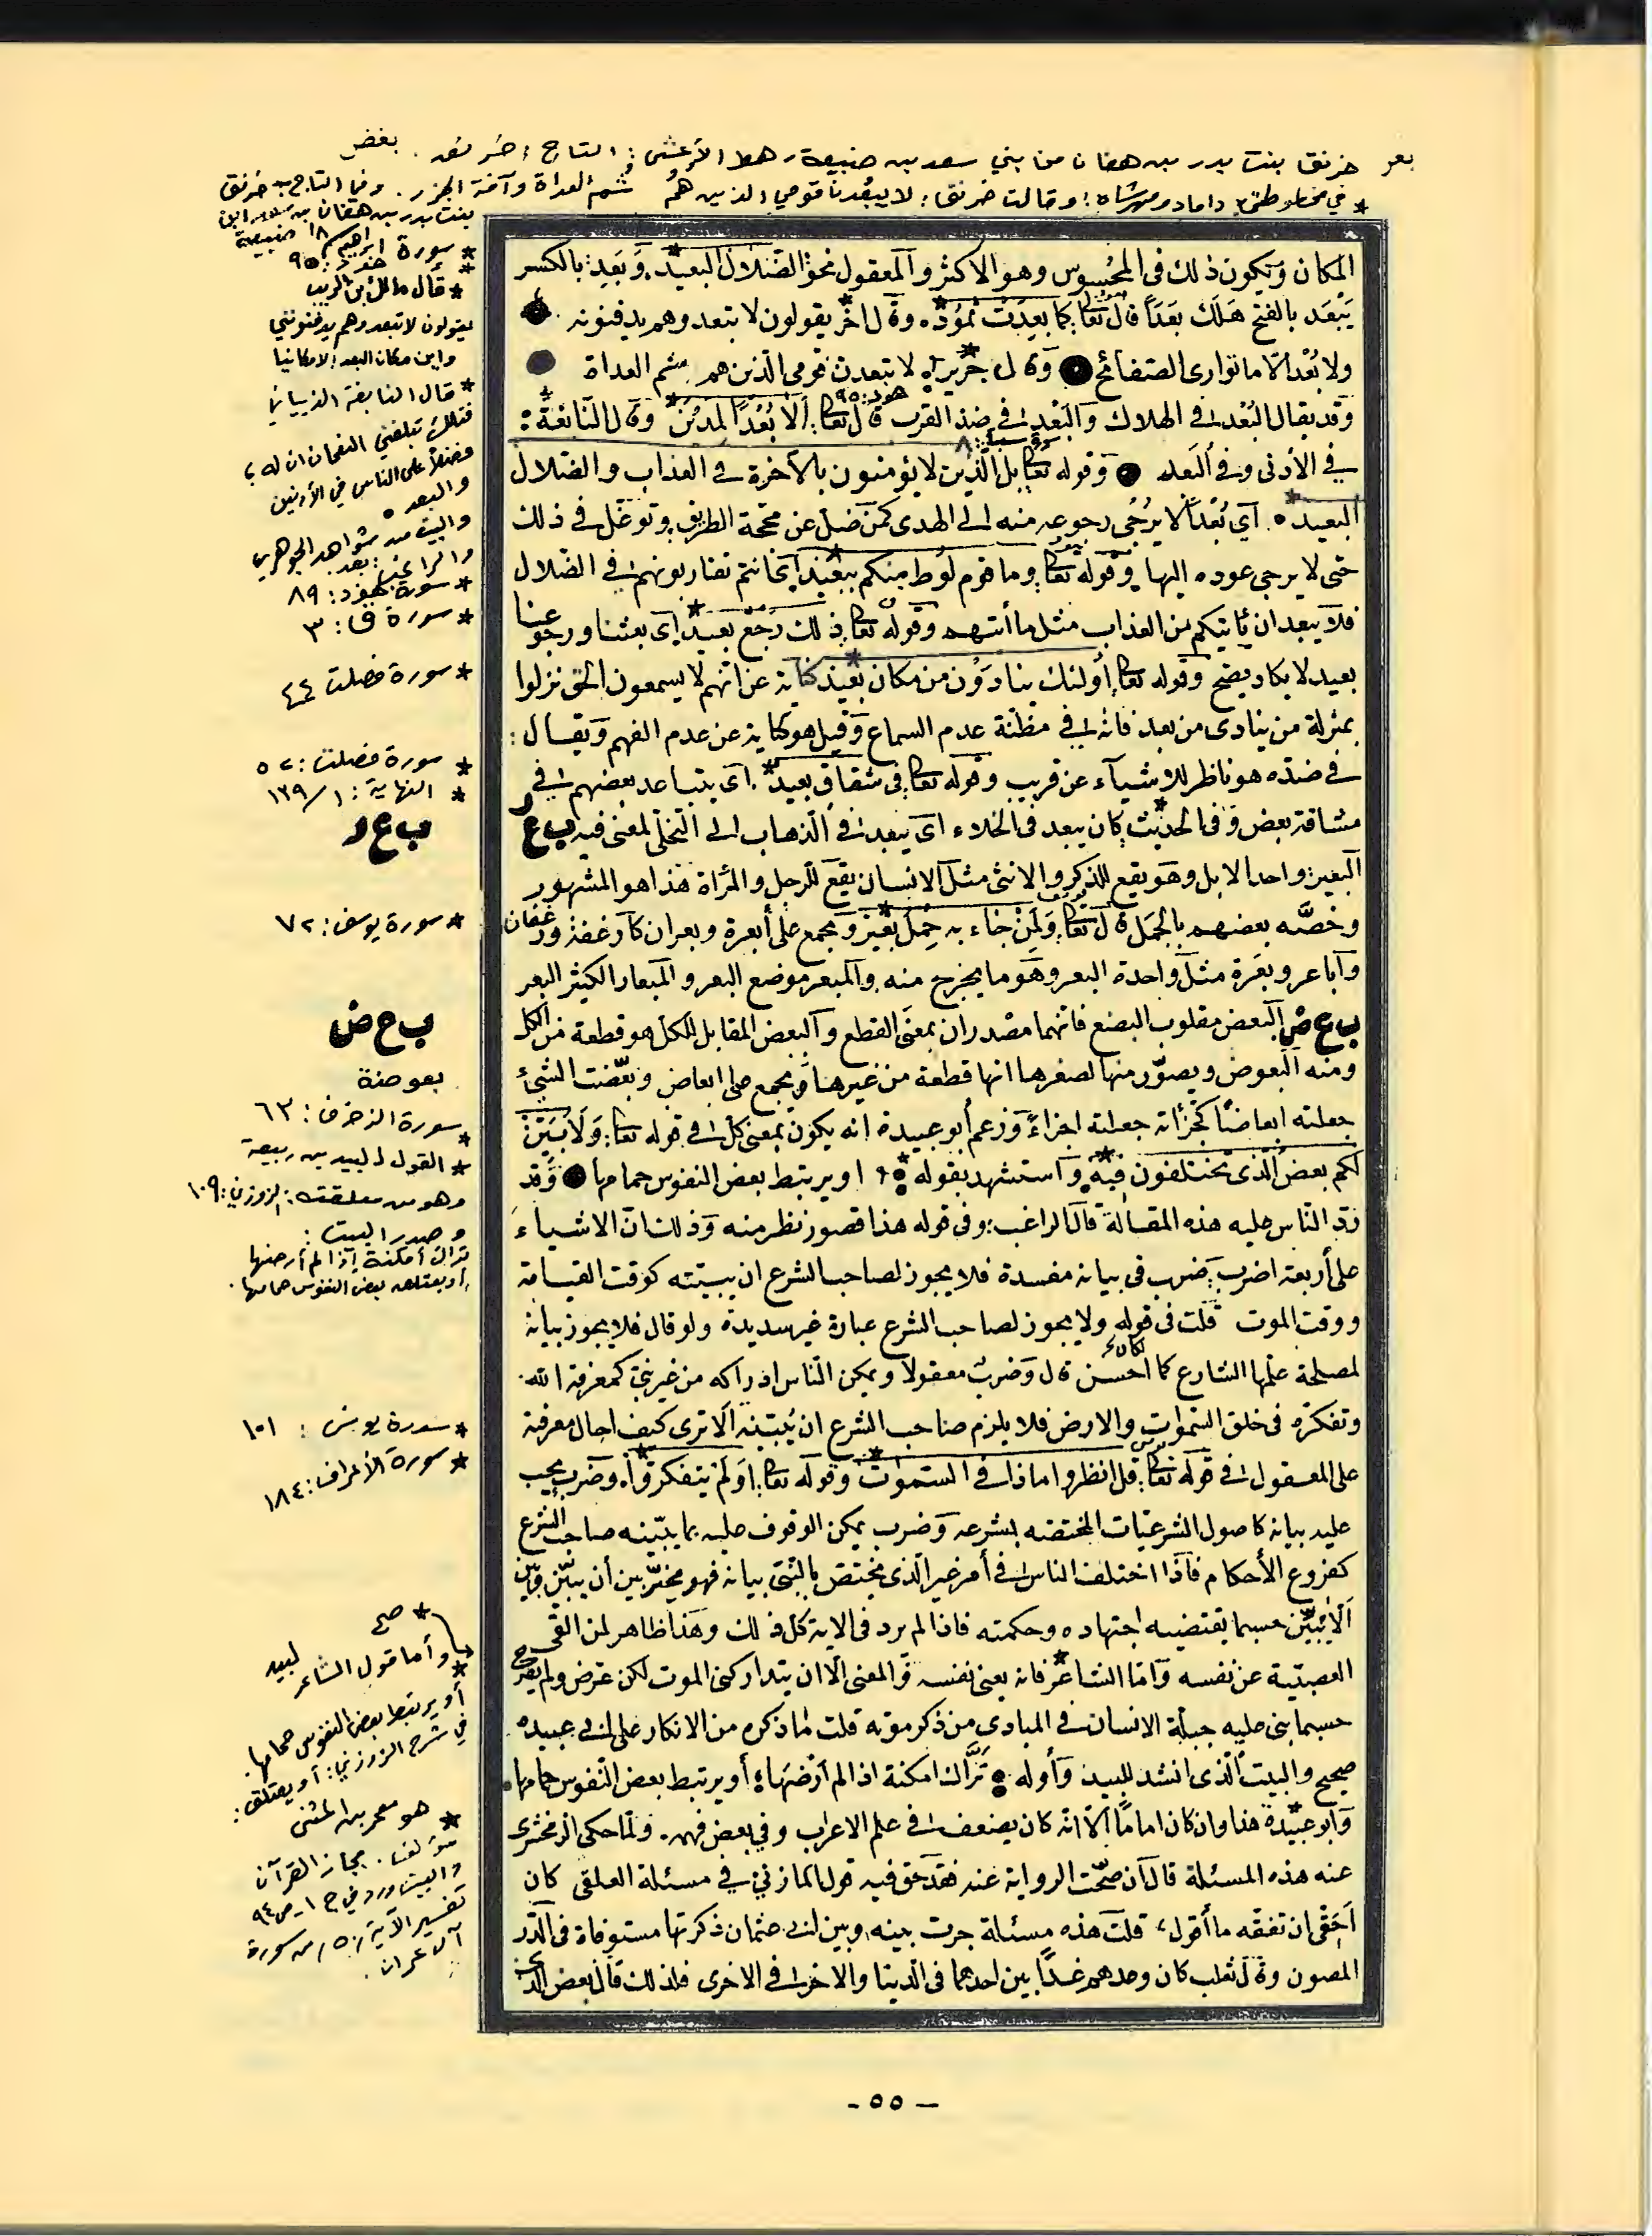 بعر خرنق بنت بدر بن هفان من بني سعد بن ضبيعة رهط الأعشى: التاج: خرنق. بعض
* في مخطوطتي داماد ومهرشاه: وقالت خرنق: لا يبعدن قومي الذين هم سم العداة وآفة الجزر. وفي التاج خرنق
بنت بدر بن هفان
المكان ويكون ذلك في المحسوس وهو الاكثر والمعقول نحو الضلال البعيد* وبعد بالكسر
يبعد بالفتح هلك بعدا قال تعالى كما بعدت ثمود* وقال اخر* يقولون لا تبعد وهم يدفنونه
ولا بعد الا ما توارى الصفائح وقال جرير* لا تبعدن قومي الذين هم سم العداة
وقد يقال البعد في الهلاك والبعد في ضد القرب قال تعالى ألا بعدا لمدين* وقال النابغة:
في الأدنى وفي البعد وقوله تعالى بل الذين لا يؤمنون بالآخرة في العذاب والضلال
البعيد* أي بعدا لا يرجى رجوعه منه الى الهدى كمن ضل عن محجة الطريق وتوغل في ذلك
حتى لا يرجى عوده اليها وقوله تعالى وما قوم لوط منكم ببعيد* أي انتم تقاربونهم في الضلال
فلا يبعد ان يأتيكم من العذاب مثل ما أتهم وقوله تعالى ذلك رجع بعيد* أي بعثنا ورجوعنا
بعيد لا يكاد يصح وقوله تعالى أولئك ينادون من مكان بعيد* كناية عن انهم لا يسمعون الحق نزلوا
بمنزلة من ينادى من بعد فانه في مظنة عدم السماع وقيل هو كناية عن عدم الفهم ويقال:
في ضده هو ناظر للاشياء عن قريب وقوله تعالى في شقاق بعيد* أي يتباعد بعضهم في
مشاقة بعض وفي الحديث* كان يبعد في الخلاء أي يبعد في الذهاب الى التخلي لمعنى فيه ب ع ر
البعير واحد الابل وهو يقع للذكر والانثى مثل الانسان يقع للرجل والمرأة هذا هو المشهور
وخصه بعضهم بالجمل قال تعالى ولمن جاء به حمل بعير* ويجمع على أبعرة وبعران كارغفة ورغفان
وأباعر وبعرة مثل واحدة البعر وهو ما يخرج منه والمبعر موضع البعر والمبعار الكثير البعر
ب ع ض البعض مقلوب البضع فانهما مصدران بمعنى القطع والبعض المقابل للكل هو قطعة من الكل
ومنه البعوض ويصور منها لصغرها انها قطعة من غيرها ويجمع على ابعاض وبعضت الشيء
جعلته ابعاضا كجزأته جعلته اجزاء وزعم أبو عبيدة انه يكون بمعنى كل في قوله تعالى ولأبين
لكم بعض الذي تختلفون فيه* واستشهد بقوله* او يرتبط بعض النفوس حمامها وقد
رد الناس عليه هذه المقالة قال الراغب: وفي قوله هذا قصور نظر منه وذلك ان الاشياء
على أربعة اضرب ضرب في بيانه مفسدة فلا يجوز لصاحب الشرع ان يبينه كوقت القيامة
ووقت الموت قلت في قوله ولا يجوز لصاحب الشرع عبارة غير سديدة ولو قال فلا يجوز بيانه
لمصلحة علمها الشارع لكان أحسن قال وضرب معقولا ويمكن الناس ادراكه من غير نبي كمعرفة الله
وتفكره في خلق السموات والارض فلا يلزم صاحب الشرع ان يبينه ألا ترى كيف احال معرفته
على المعقول في قوله تعالى قل انظروا ماذا في السموات* وقوله تعالى اولم يتفكروا* وضرب يجب
عليه بيانه كاصول الشرعيات المختصة بشرعه وضرب يمكن الوقوف عليه بما يبينه صاحب الشرع
كفروع الأحكام فاذا اختلف الناس في أمر غير الذي مختص بالنبي بيانه فهو مخير بين أن يبين وبين
ألا يبين حسبما يقتضيه اجتهاده وحكمته فاذا لم يرد في الاية كل ذلك وهذا ظاهر لمن القى
العصبية عن نفسه واما الشاعر* فانه يعني نفسه والمعنى الا ان يتداركني الموت لكن عرض ولم يصرح
حسبما بني عليه جبلة الانسان في المبادي من ذكر موته قلت ما ذكره من الانكار على ابي عبيدة
صحيح والبيت الذي انشده للبيد وأوله تراك امكنة اذا لم أرضها أو يرتبط بعض النفوس حمامها
وأبو عبيدة* هذا وان كان اماما الا انه كان يضعف في علم الاعراب وفي بعض فهمه. ولما حكى الزمخشري
عنه هذه المسئلة قال ان صحت الرواية عنه فقد حق فيه قول المازني في مسئلة العلقى كان
أجفى ان تفقه ما أقول، قلت هذه مسئلة جرت بينه وبين ابي عثمان ذكرتها مستوفاة في الدر
المصون وقال ثعلب كان وعدهم عذابين احدهما في الدنيا والاخر في الاخرى فلذلك قال بعض الذي
* سورة ابراهيم ١٨
* سورة هود: ٩٥
* قال مالك بن الريب
يقولون لا تبعد وهم يدفنونني
واين مكان البعد الا مكانيا
* قال النابغة الذبياني
فتلك تبلغني النعمان ان له
فضلا على الناس في الأدنين
والبعد
والبيت من شواهد الجوهري
والراغب: بعد
* سورة هود: ٨٩
* سورة ق: ٣
* سورة فصلت ٤٤
* سورة فصلت: ٥٢
* النهاية: ١/١٣٩
ب ع ر
* سورة يوسف: ٧٢
ب ع ض
بعوضة
* سورة الزخرف: ٦٣
* القول للبيد بن ربيعة
وهو من معلقته: الزوزني: ١٠٩
وصدر البيت:
تراك أمكنة إذا لم أرضها
أو يعتلق بعض النفوس حمامها.
* سورة يونس: ١٠١
* سورة الأعراف: ١٨٤
* صح
وأما قول الشاعر لبيد
* أو يرتبط بعض النفوس حمامها.
في شرح الزوزني: أو يعتلق:
* هو معمر بن المثنى
مؤلف. مجاز القرآن
والبيت ورد في ج ١-ص ٩٤
تفسير الآية / ٥٠ / من سورة
آل عمران.
- ٥٥ -